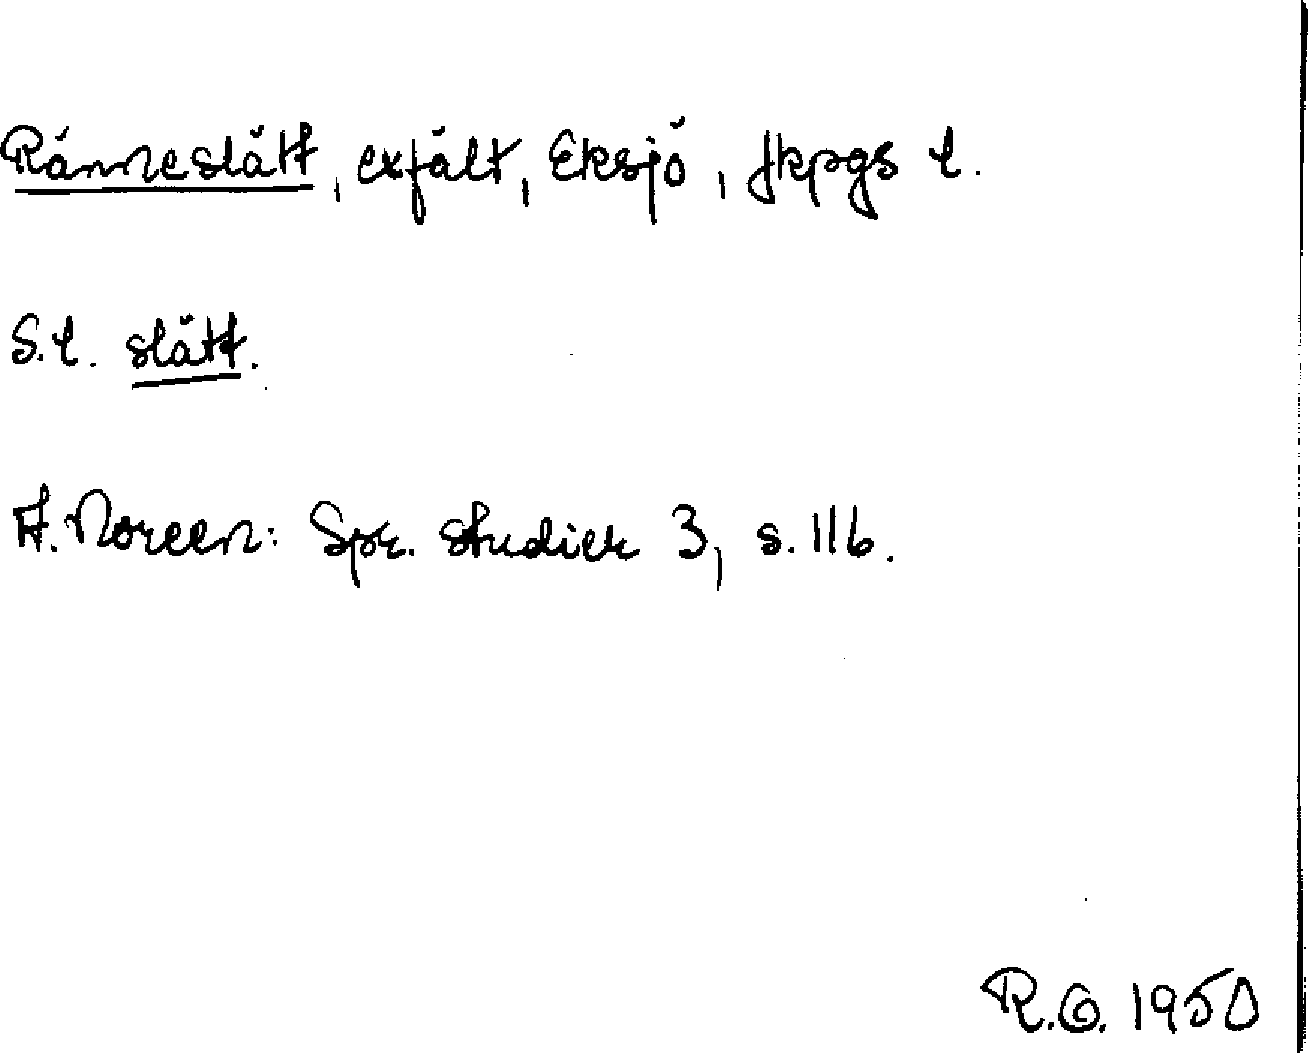 Ränneslätt, exfält, Eksjö, Jkpgs l.
S.l. slätt.
A. Noreen: Spr. studier 3, s. 116.
R.G. 1950